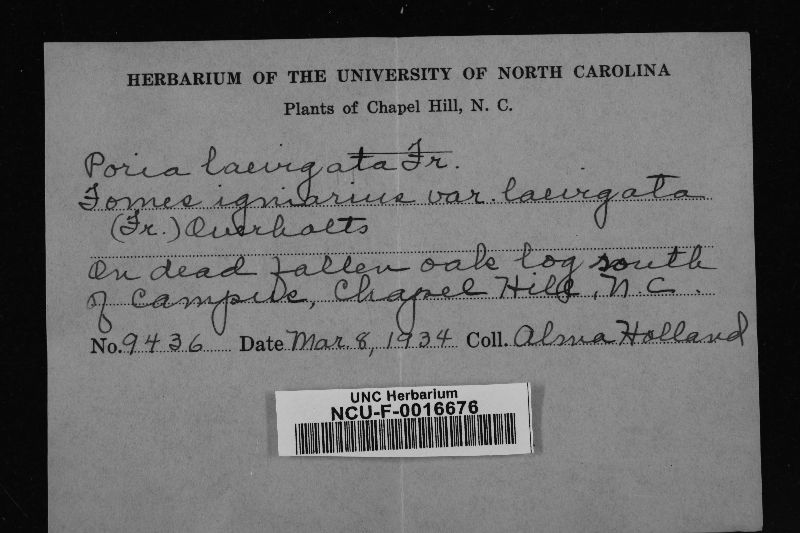 HERBARIUM OF THE UNIVERSITY OF NORTH CAROLINA
Plants of Chapel Hill, N. C.
Poria laevigata Fr.
Fomes igniarius var. laevigata
(Fr.) Overholts
On dead fallen oak log south
of campus, Chapel Hill, N.C.
No. 9436 Date Mar. 8, 1934 Coll. Alma Holland
UNC Herbarium
NCU-F-0016676